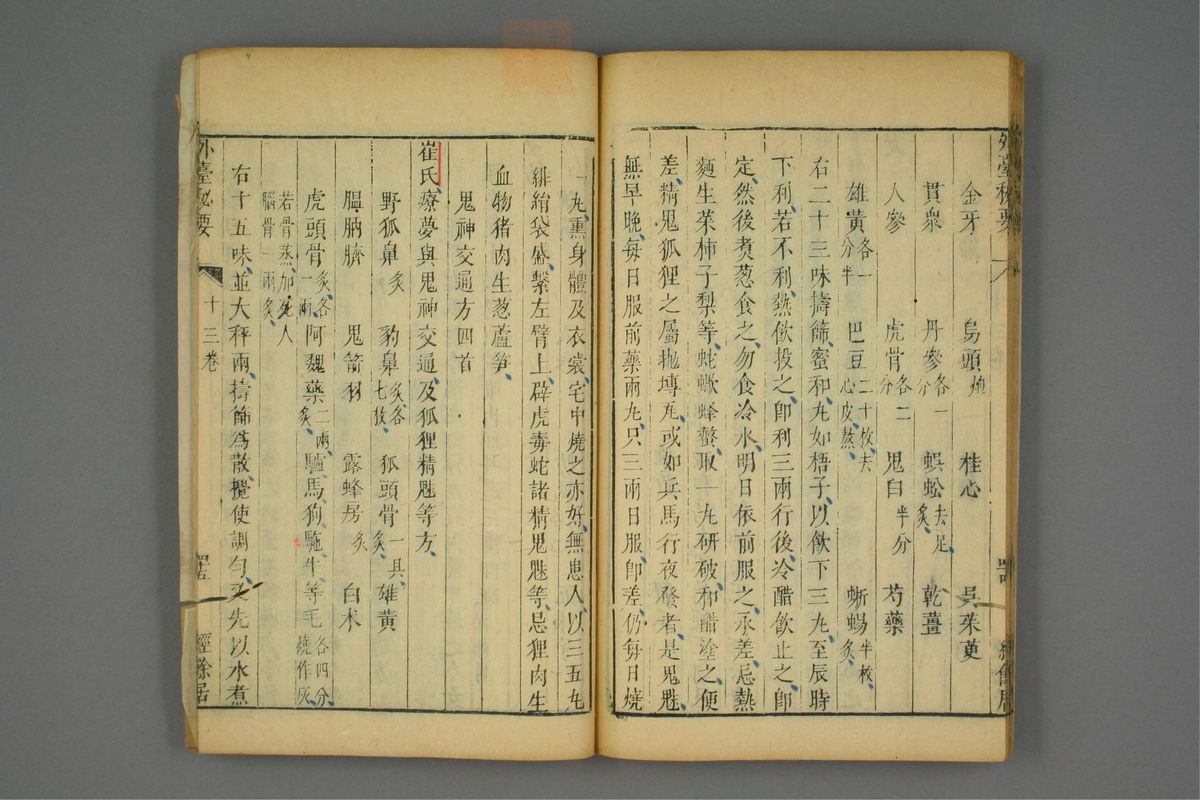 外臺秘要
金牙　烏頭炮　桂心　吳茱萸
貫衆　丹參各一分　蜈蚣去足炙　乾薑
人參　虎骨各二分　鬼臼半分　芍藥
雄黃各一分半　巴豆二十枚去心皮熬　蜥蜴半枚炙
右二十三味擣篩蜜和丸如梧子以飲下三丸至辰時
下利若不利熱飲投之卽利三兩行後冷醋飲止之卽
定然後煑葱食之勿食冷水明日依前服之永差忌熱
麵生菜柿子梨等蛇蠍蜂螫取一丸研破和醋塗之便
差精鬼狐狸之屬抛塼瓦或如兵馬行夜發者是鬼魅
無早晚每日服前藥兩丸只三兩日服卽差仍每日燒
一丸熏身體及衣裳宅中燒之亦好無患人以三五丸
緋綃袋盛繫左臂上辟虎毒蛇諸精鬼魅等忌狸肉生
血物猪肉生葱蘆笋
鬼神交通方四首
崔氏療夢與鬼神交通及狐狸精魅等方
野狐鼻炙　豹鼻炙各七枚　狐頭骨一具炙　雄黃
膃肭臍　鬼箭羽　露蜂房炙　白术
虎頭骨炙各一兩　阿魏藥二兩炙　驢馬狗駞牛等毛各四分燒作灰
若骨蒸加死人腦骨一兩炙
右十五味並大秤兩擣篩爲散攪使調勻又先以水煮
外臺秘要　十三卷　經餘居